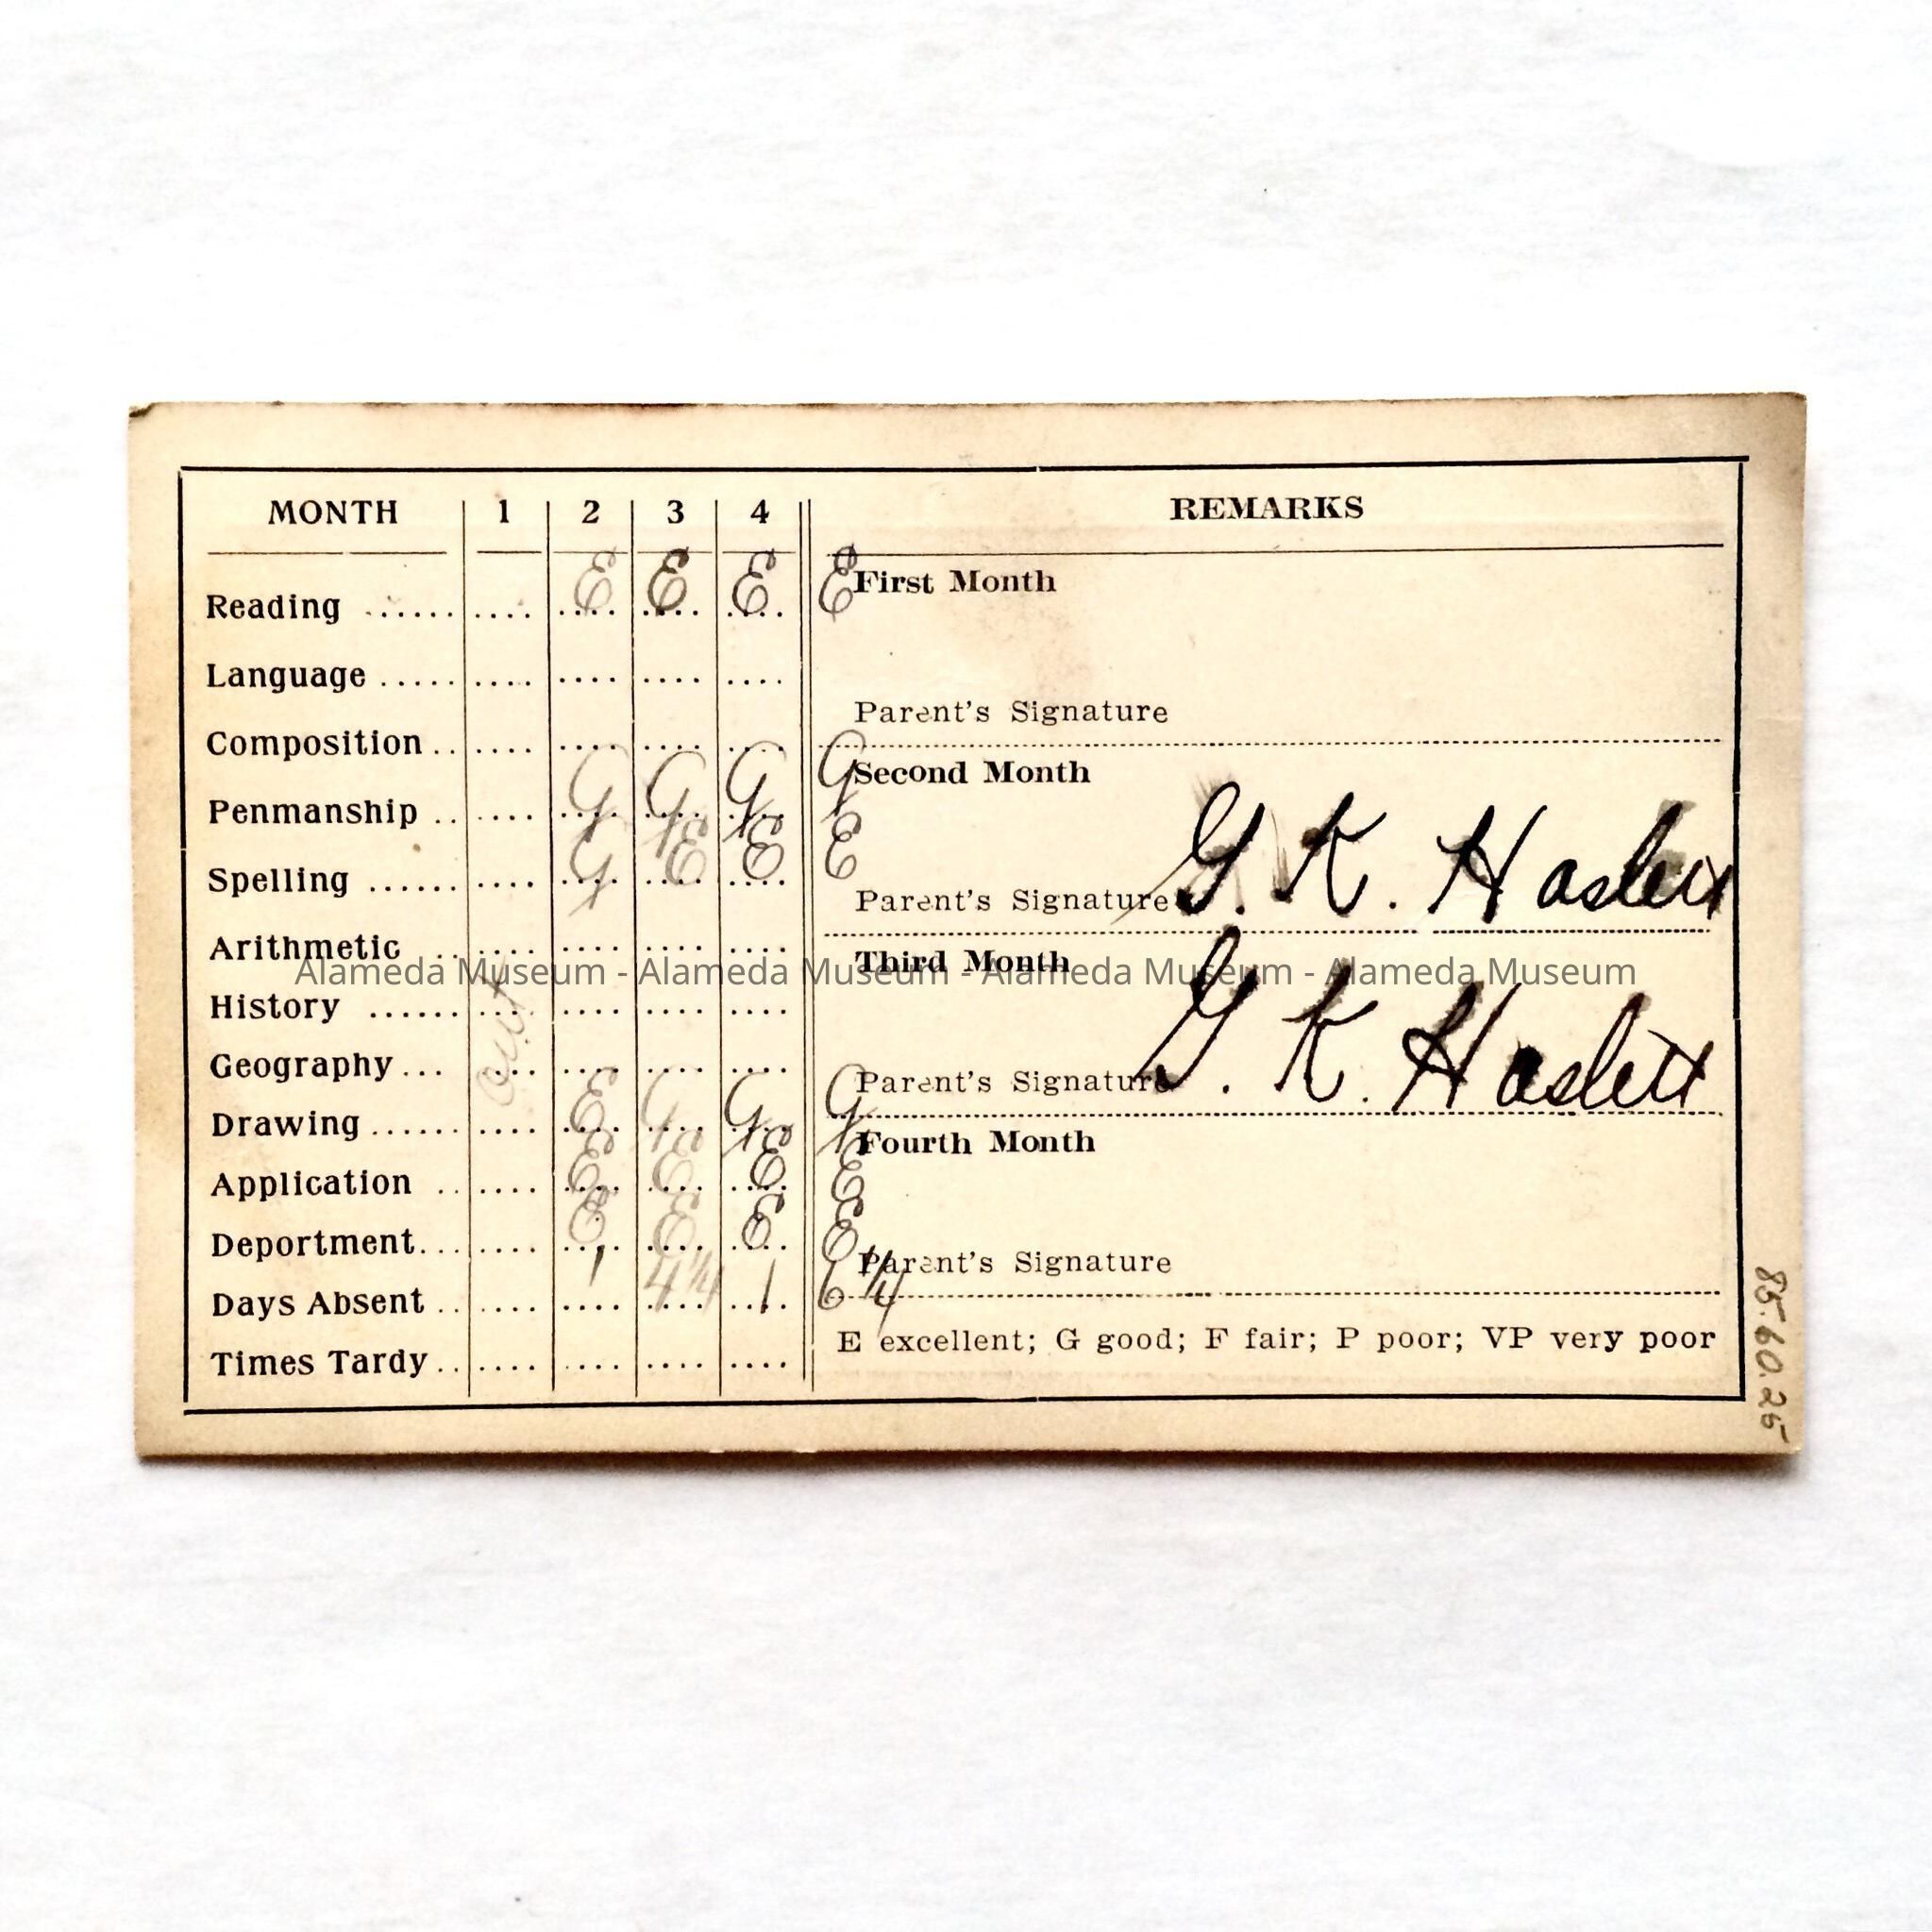 MONTH 1 2 3 4 REMARKS
Reading ...... .... E E E E First Month
Language ..... .... .... .... ....
Parent's Signature
Composition .. .... .... .... ....
Second Month
Penmanship .. .... G G G G
Spelling ...... .... G E E E
Parent's Signature G. K. Haslett
Arithmetic .. .... .... .... ....
Third Month
Alameda Museum - Alameda Museum - Alameda Museum - Alameda Museum
History ...... .... .... .... ....
out
Geography ... .... .... .... ....
Parent's Signature G. K. Haslett
Drawing ...... .... E G G G
Fourth Month
Application .. .... E E E E
Deportment... .... E E E E
Parent's Signature
Days Absent .. .... 1 4 1/4 1 6 1/4
E excellent; G good; F fair; P poor; VP very poor
Times Tardy .. .... .... .... ....
85.60.25